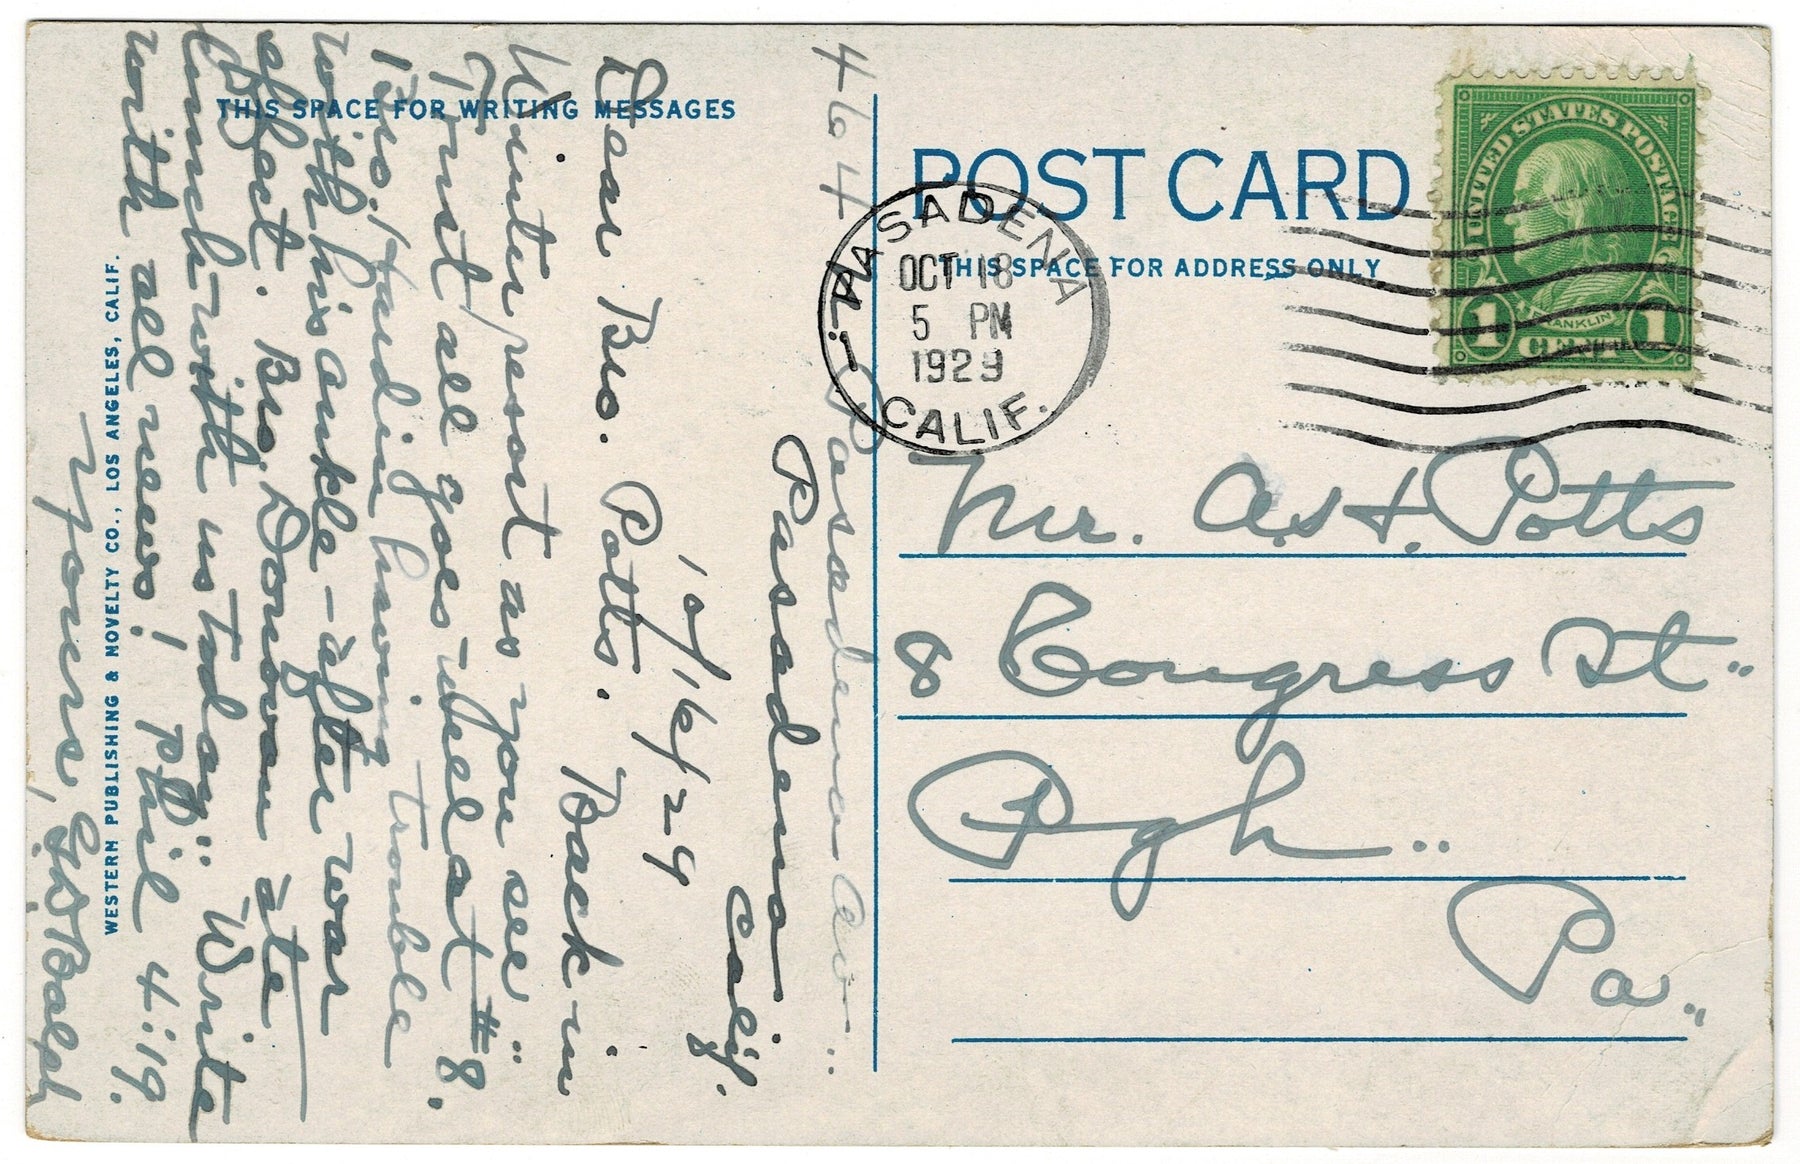 THIS SPACE FOR WRITING MESSAGES
464 N. Pasadena Av..
Pasadena
Calif.
10/16/29
Dear Bro. Potts. Back in
Winter resort as you see..
Trust all goes well at #8.
Bro. Harding having trouble
with his ankle - after war
effect. Bro. Donovan ate
lunch with us today.. Write
with all news! Phil 4:19.
Yours,
WESTERN PUBLISHING & NOVELTY CO., LOS ANGELES, CALIF.
POST CARD
THIS SPACE FOR ADDRESS ONLY
PASADENA
OCT 18
5 PM
1929
CALIF.
UNITED STATES POSTAGE
FRANKLIN
1 CENT 1
Mr. A. H. Potts
8 Congress St..
Pgh..
Pa..